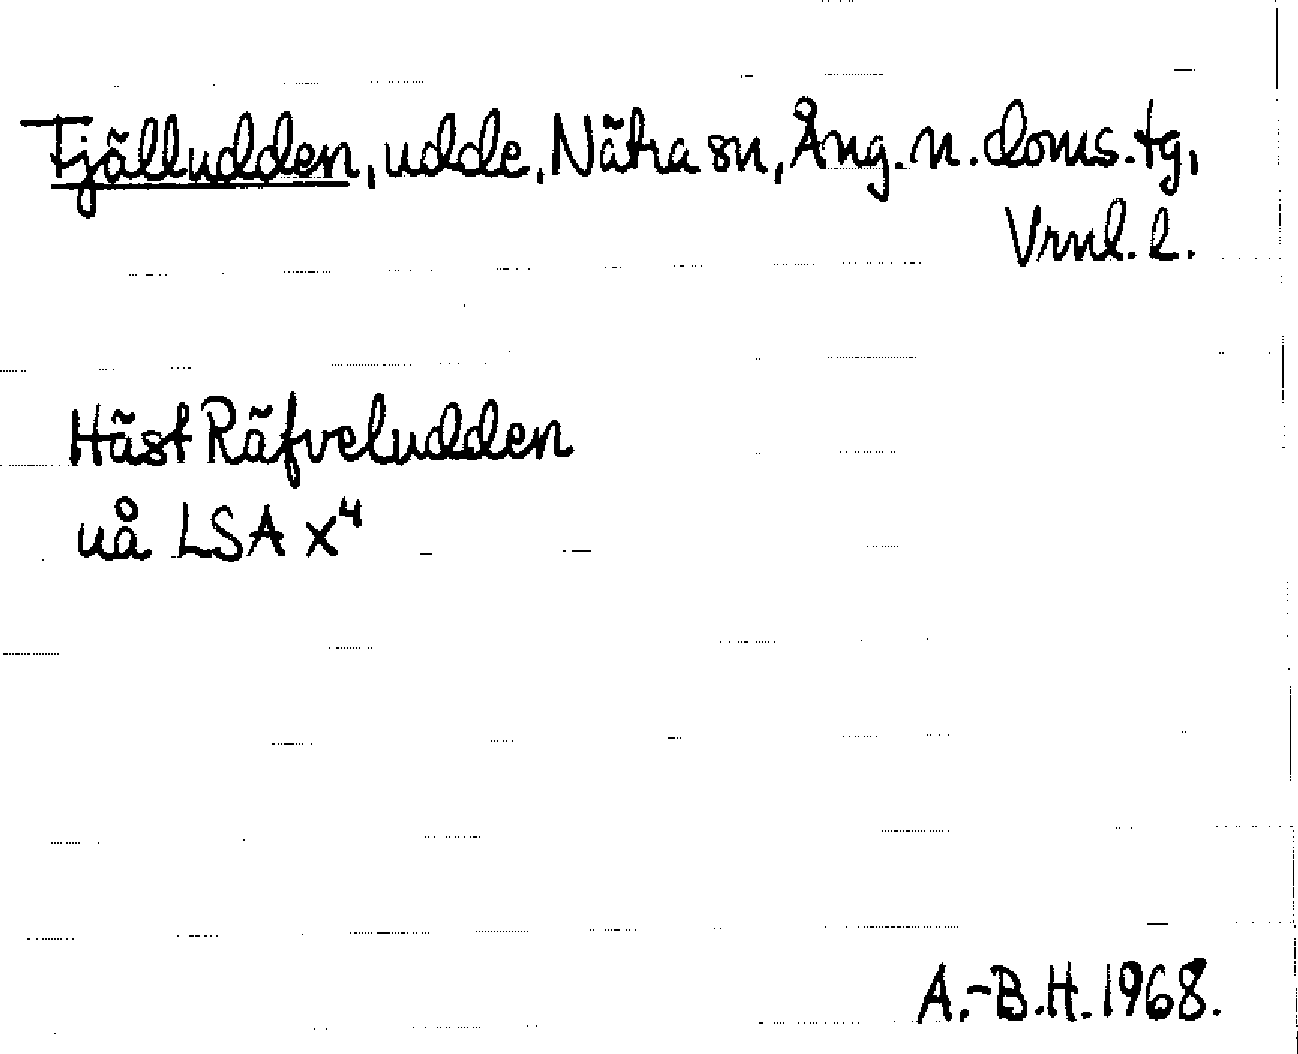 Fjälludden, udde, Nätra sn, Ång. n. doms. tg,
Vrnl. l.
Häst Räfveludden
uå LSA X⁴
A.-B.H. 1968.